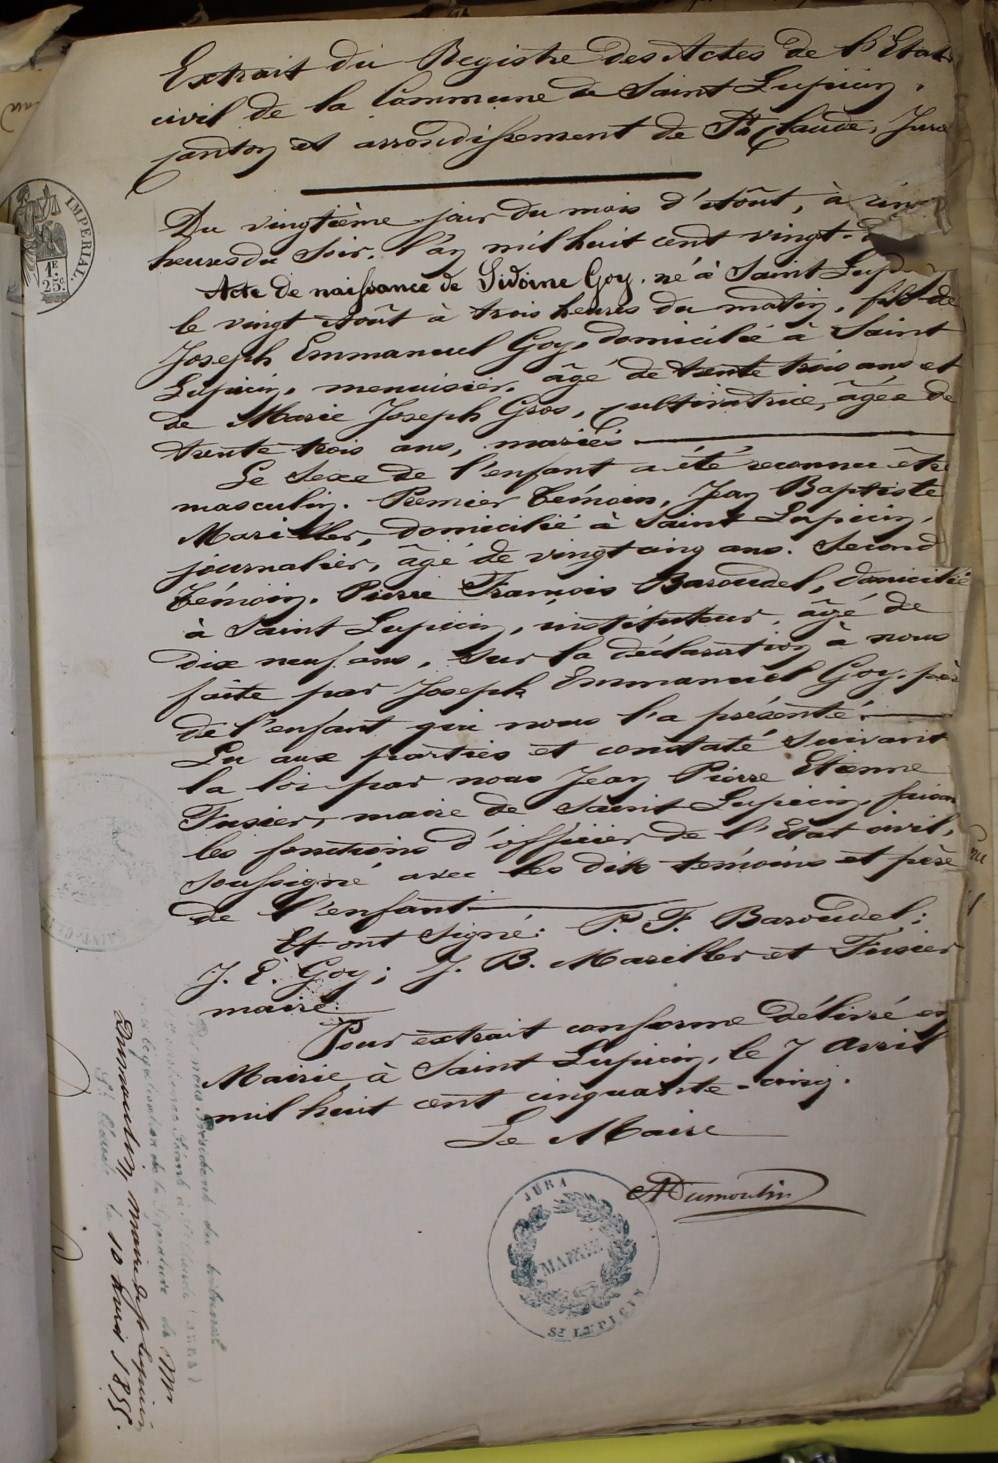 Extrait du Registre des Actes de l'Etat
civil de la Commune de Saint Lupicin,
canton et arrondissement de St Claude, Jura
Du vingtième jour du mois d'Août, à cinq
heures du soir, l'an mil huit cent vingt-
Acte de naissance de Sidoine Goy, né à Saint Lupicin
le vingt Août à trois heures du matin, fils de
Joseph Emmanuel Goy, domicilié à Saint
Lupicin, menuisier, âgé de trente trois ans et
de Marie Joseph Gros, cultivatrice, âgée de
trente trois ans, mariés
Le Sexe de l'enfant a été reconnu être
masculin. Premier témoin, Jean Baptiste
Mariller, domicilié à Saint Lupicin,
journalier, âgé de vingt cinq ans. Second
témoin, Pierre François Baroudel, domicilié
à Saint Lupicin, instituteur, âgé de
dix neuf ans, sur la déclaration à nous
faite par Joseph Emmanuel Goy, père
de l'enfant qui nous l'a présenté.
Lu aux parties et constaté suivant
la loi par nous Jean Pierre Etienne
Fusier, maire de Saint Lupicin, faisant
les fonctions d'officier de l'Etat civil,
soussigné avec les dits témoins et père
de l'enfant
Et ont signé: P. F. Baroudel;
J. E. Goy; J. B. Mariller et Fusier
maire.
Pour extrait conforme délivré en
Mairie à Saint Lupicin, le 7 Avril
mil huit cent cinquante-cinq.
Le Maire
ADumoulin
JURA
MAIRIE
St LUPICIN
IMPERIAL.
1F.
25c
Vu par nous Président du tribunal
légalisation de la signature de Mr
Dumoulin, maire de St Lupicin
St Claude le 10 Avril 1855.